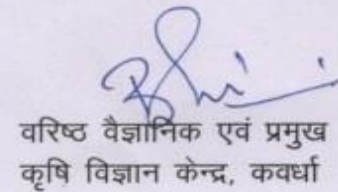 वरिष्ठ वैज्ञानिक एवं प्रमुख
कृषि विज्ञान केन्द्र, कवर्धा